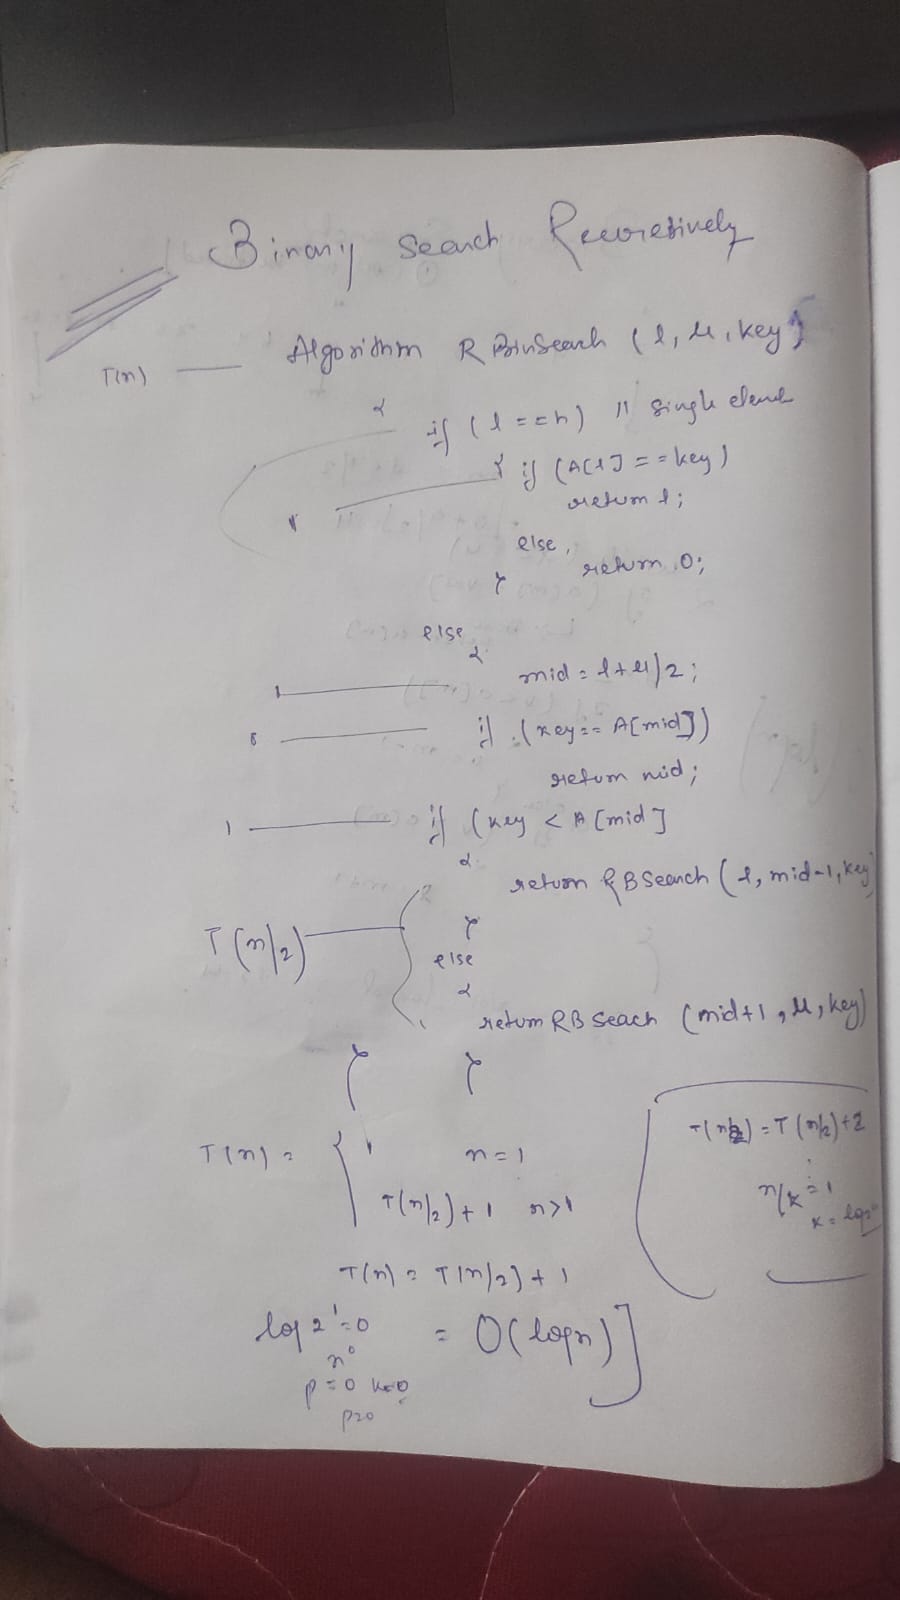 Binary Search Recursively
T(n) — Algorithm RBinSearch (l, h, key)
{
if (l == h) // single element
{ if (A[l] == key)
return l;
else,
return 0;
}
else
{
1 — mid = l+h/2;
1 — if (key == A[mid])
return mid;
1 — if (key < A[mid]
{
return RBSearch (l, mid-1, key)
}
T(n/2) — else
{
return RB Seach (mid+1, h, key)
} }
T(n) = { 1 n=1
T(n/2)+1 n>1
T(n) = T(n/2) + 1
log 2 1 = 0 = O(logn)]
n^0
p=0 k=0
p=0
= T(n/2)+2
n/k = 1
k = log